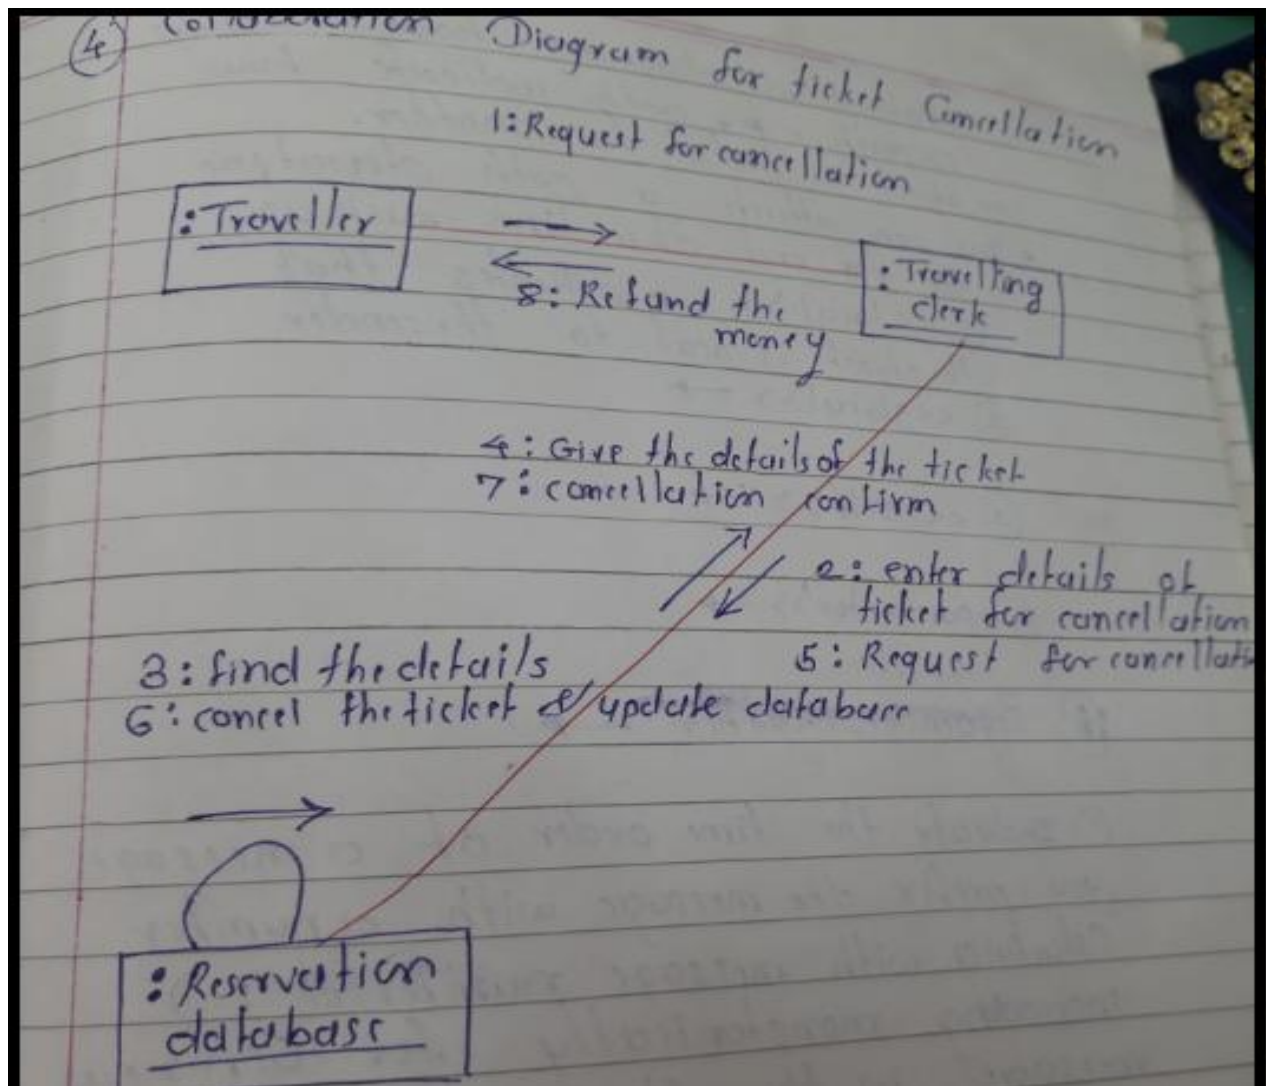 4 Collaboration Diagram for ticket Cancellation
1: Request for cancellation
: Traveller
: Travelling
clerk
8: Refund the
money
4: Give the details of the ticket
7: cancellation confirm
2: enter details of
ticket for cancellation
5: Request for cancellati
3: find the details
6: cancel the ticket & update database
: Reservation
database